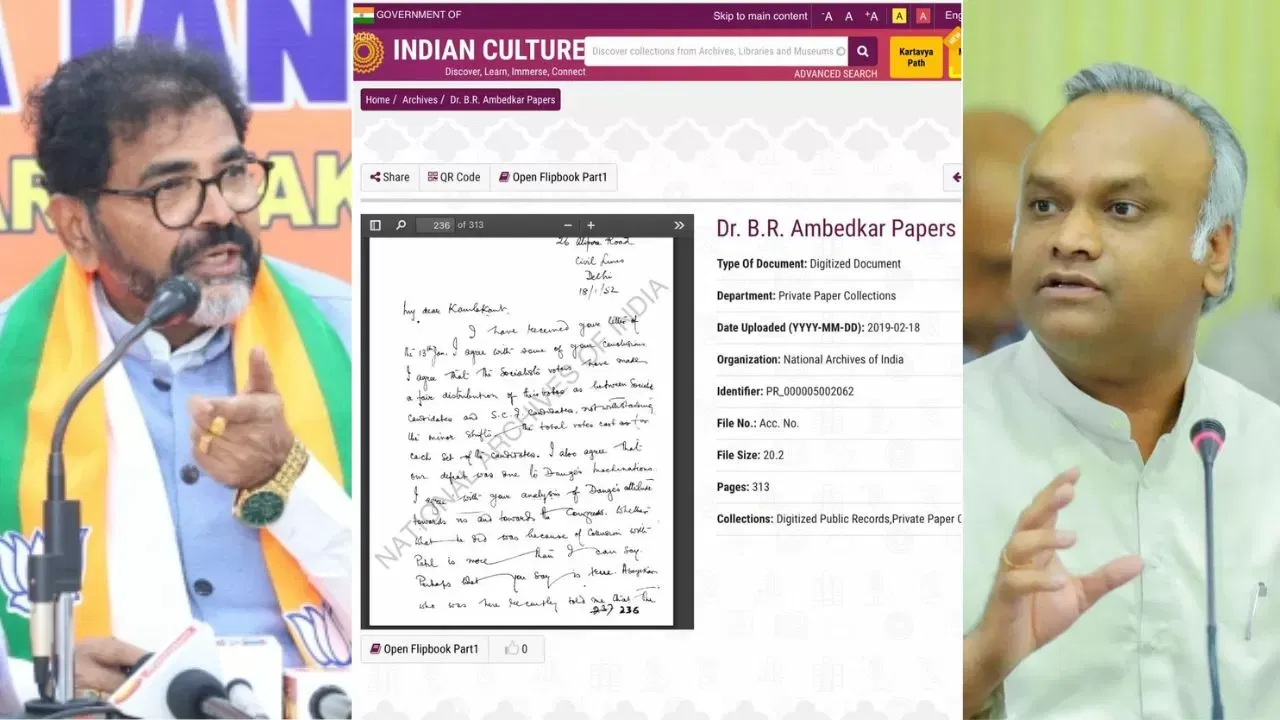 A JAN
AR
AK
GOVERNMENT OF
Skip to main content
-A A +A A A Eng
INDIAN CULTURE
Discover, Learn, Immerse, Connect
Discover collections from Archives, Libraries and Museums
ADVANCED SEARCH
Kartavya
Path
NEW
Home / Archives / Dr. B.R. Ambedkar Papers
Share
QR Code
Open Flipbook Part1
236 of 313
26 Alipore Road
Civil Lines
Delhi
18/1/52
My dear Kamlakant.
I have received your letter of
the 13th Jan. I agree with some of your conclusions.
I agree that the Socialists voters have made
a fair distribution of their votes as between Socialist
candidates and S.C.F. candidates, notwithstanding
the minor shifts in the total votes cast as for
each set of candidates. I also agree that
our defeat was due to Dange's machinations.
I agree with your analysis of Dange's attitude
towards us and towards the Congress. Whether
what he did was because of Coercion with
Patil is more than I can say.
Perhaps what you say is true.
who was here recently told me that the
237 236
NATIONAL ARCHIVES OF INDIA
Open Flipbook Part1
0
Dr. B.R. Ambedkar Papers
Type Of Document: Digitized Document
Department: Private Paper Collections
Date Uploaded (YYYY-MM-DD): 2019-02-18
Organization: National Archives of India
Identifier: PR_000005002062
File No.: Acc. No.
File Size: 20.2
Pages: 313
Collections: Digitized Public Records,Private Paper C